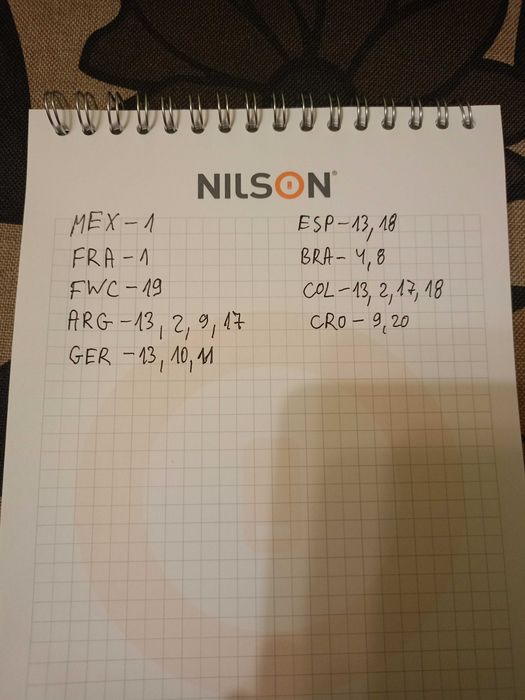 NILSON®
MEX - 1
FRA - 1
FWC - 19
ARG - 13, 2, 9, 17
GER - 13, 10, 11
ESP - 13, 18
BRA - 4, 8
COL - 13, 2, 17, 18
CRO - 9, 20